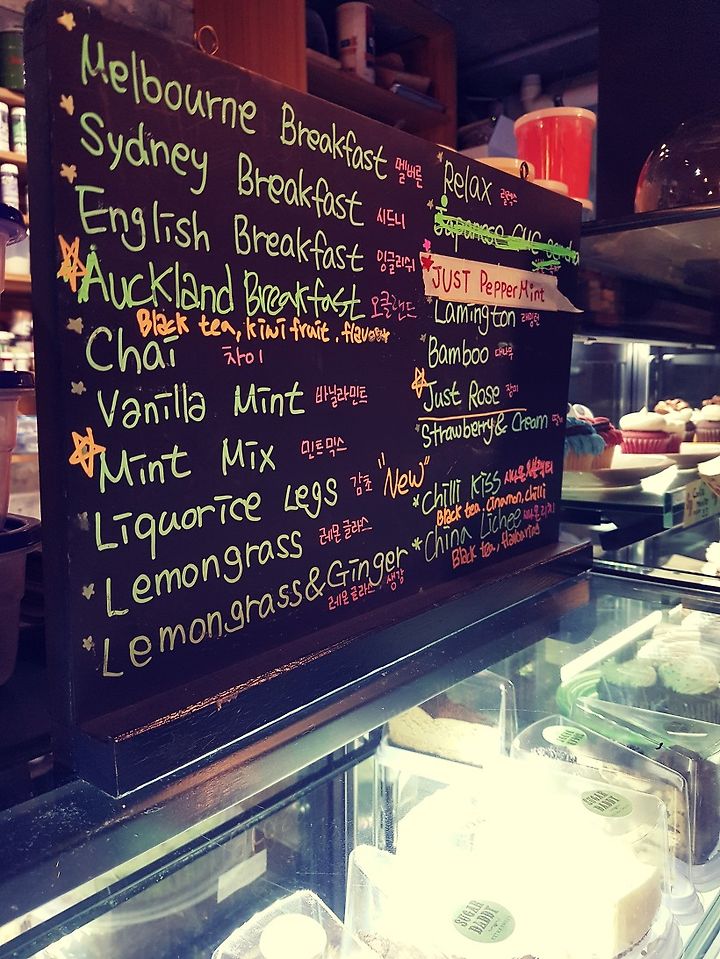 Melbourne Breakfast 멜버른
Sydney Breakfast 시드니
English Breakfast 잉글리쉬
Auckland Breakfast 오클랜드
Black tea, kiwi fruit, flavour
Chai 차이
Vanilla Mint 바닐라민트
Mint Mix 민트믹스
Liquorice Legs 감초 "New"
Lemongrass 레몬글라스
Lemongrass & Ginger
레몬글라스, 생강
Relax 릴렉스
Japanese
JUST PepperMint
Lamington 래밍턴
Bamboo 대나무
Just Rose 장미
Strawberry & Cream 딸기
Chilli Kiss
Black tea, Cinamon, chilli
China Lichee
Black tea,
SUGAR DADDY
SUGAR DADDY